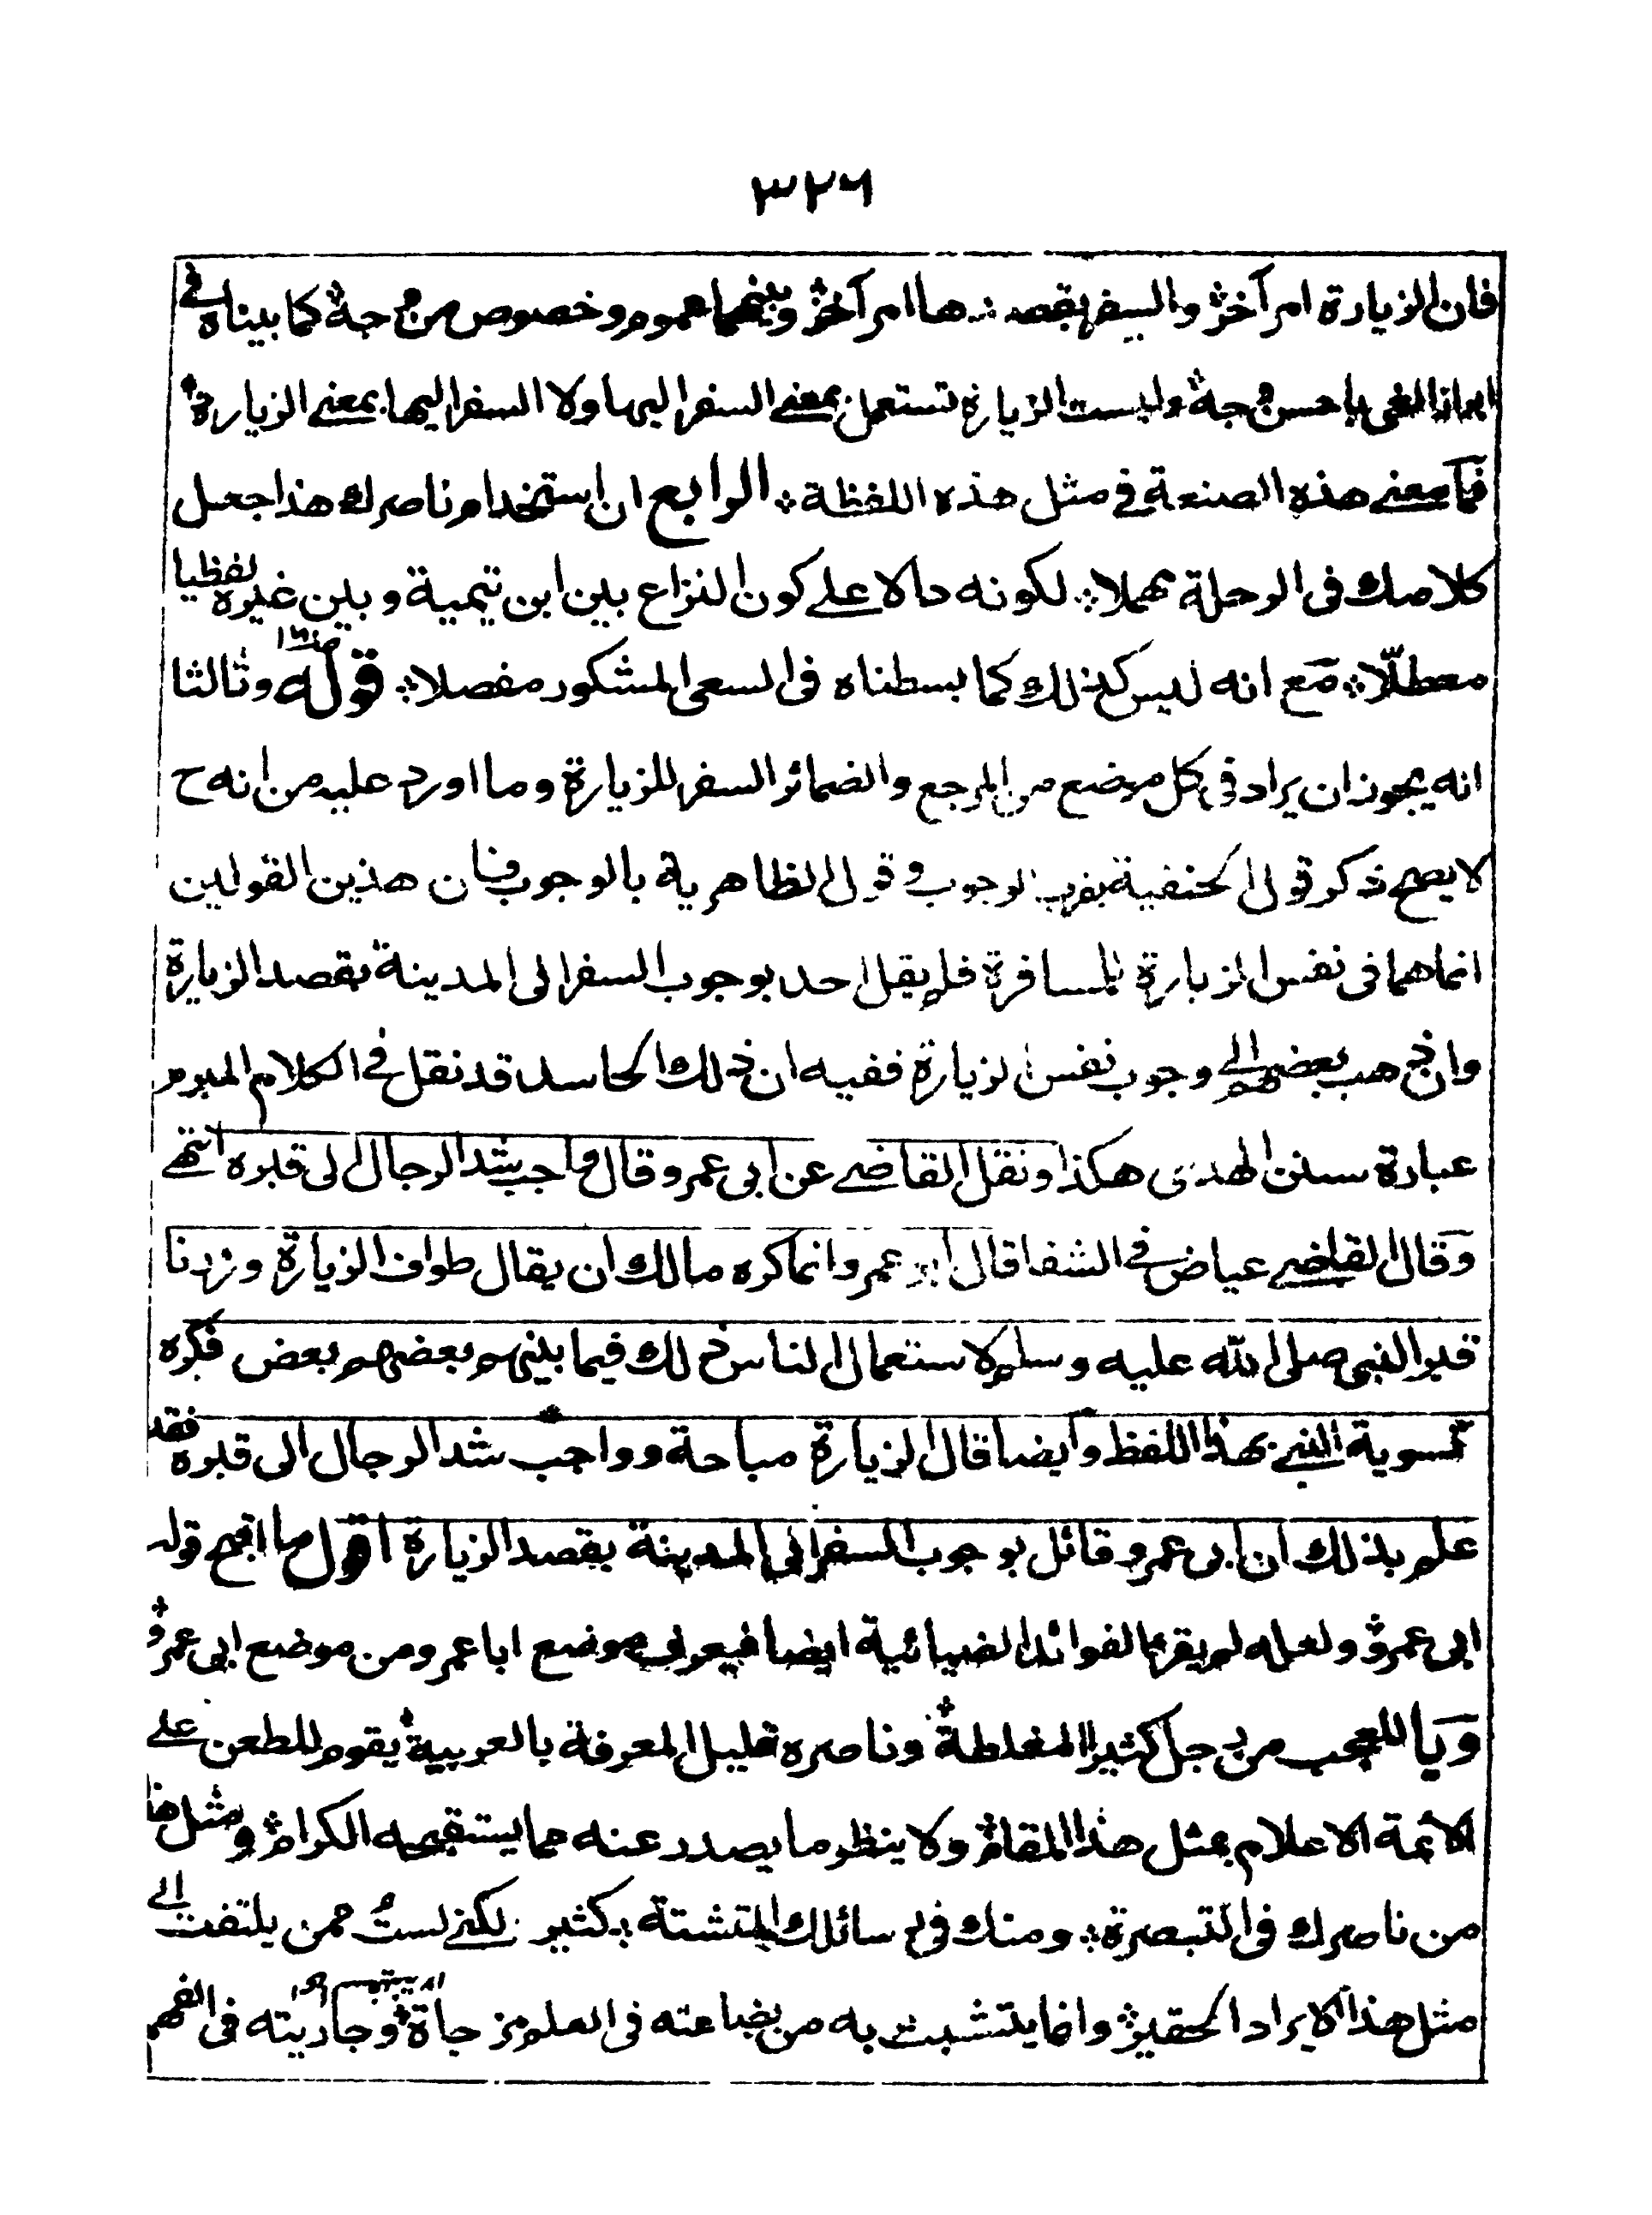 ٣٢٦
فان الزيارة امر آخر؞ والسفر بقصدها امر آخر؞ وبينهما عموم وخصوص من وجه؞ كما بيناه في
ابراز الغي باحسن وجه؞ وليست الزيارة تستعمل بمعنے السفر اليها ولا السفر اليها بمعنے الزيارة؞
فما معنے هذه الصنعة في مثل هذه اللفظة؞ الرابع ان استخدام ناصرك هذا جعل
كلامك فى الرحلة مهملا؞ لكونه دالا علے كون النزاع بين ابن تيمية وبين غيره لفظيا
معطلّا؞ مع انه ليس كذلك كما بسطناه فى السعى المشكور مفصلا؞ قوله وثالثا
انه يجوز ان يراد فى كل موضع من المرجع والضمائر السفر للزيارة وما اورد عليه من انه ح
لا يصح ذكر قول الحنفية بقرب الوجوب وقول الظاهرية بالوجوب فان هذين القولين
انما هما فى نفس الزيارة لا المسافرة فلم يقل احد بوجوب السفر الى المدينة بقصد الزيارة
وان ذهب بعضهم الے وجوب نفس الزيارة ففيه ان ذلك الحاسد قد نقل في الكلام المبرم
عبارة سنن الهدى هكذا ونقل القاضے عن ابى عمرو قال واجب شد الرحال الى قبره انتهے
وقال القاضے عياض في الشفا قال ابو عمرو انما كره مالك ان يقال طواف الزيارة وزرنا
قبر النبى صلى الله عليه وسلم لاستعمال الناس ذلك فيما بينهم بعضهم بعض فكره
تسوية النبے بهذا اللفظ وايضا قال الزيارة مباحة وواجب شد الرحال الى قبره فقد
علم بذلك ان ابى عمرو قائل بوجوب السفر الى المدينة بقصد الزيارة اقول ما اقبح قوله
ابى عمرو؞ ولعله لم يقرء الفوائد الضيائية ايضا فيعرف موضع ابا عمرو من موضع ابى عمرو؞
ويا للعجب من رجل كثير المغلطة؞ وناصره قليل المعرفة بالعربية؞ يقوم للطعن علے
الائمة الاعلام بمثل هذا المقام؞ ولا ينظر ما يصدر عنه مما يستقبحه الكرام؞ ومثل هذا
من ناصرك فى التبصرة؞ ومنك فى رسائلك المتشتة؞ كثير لكنے لستُ ممن يلتفت الے
مثل هذا الايراد الحقير؞ وانما يتشبث به من بضاعته فى العلوم مزجاة؞ وجاريته فى الفهم